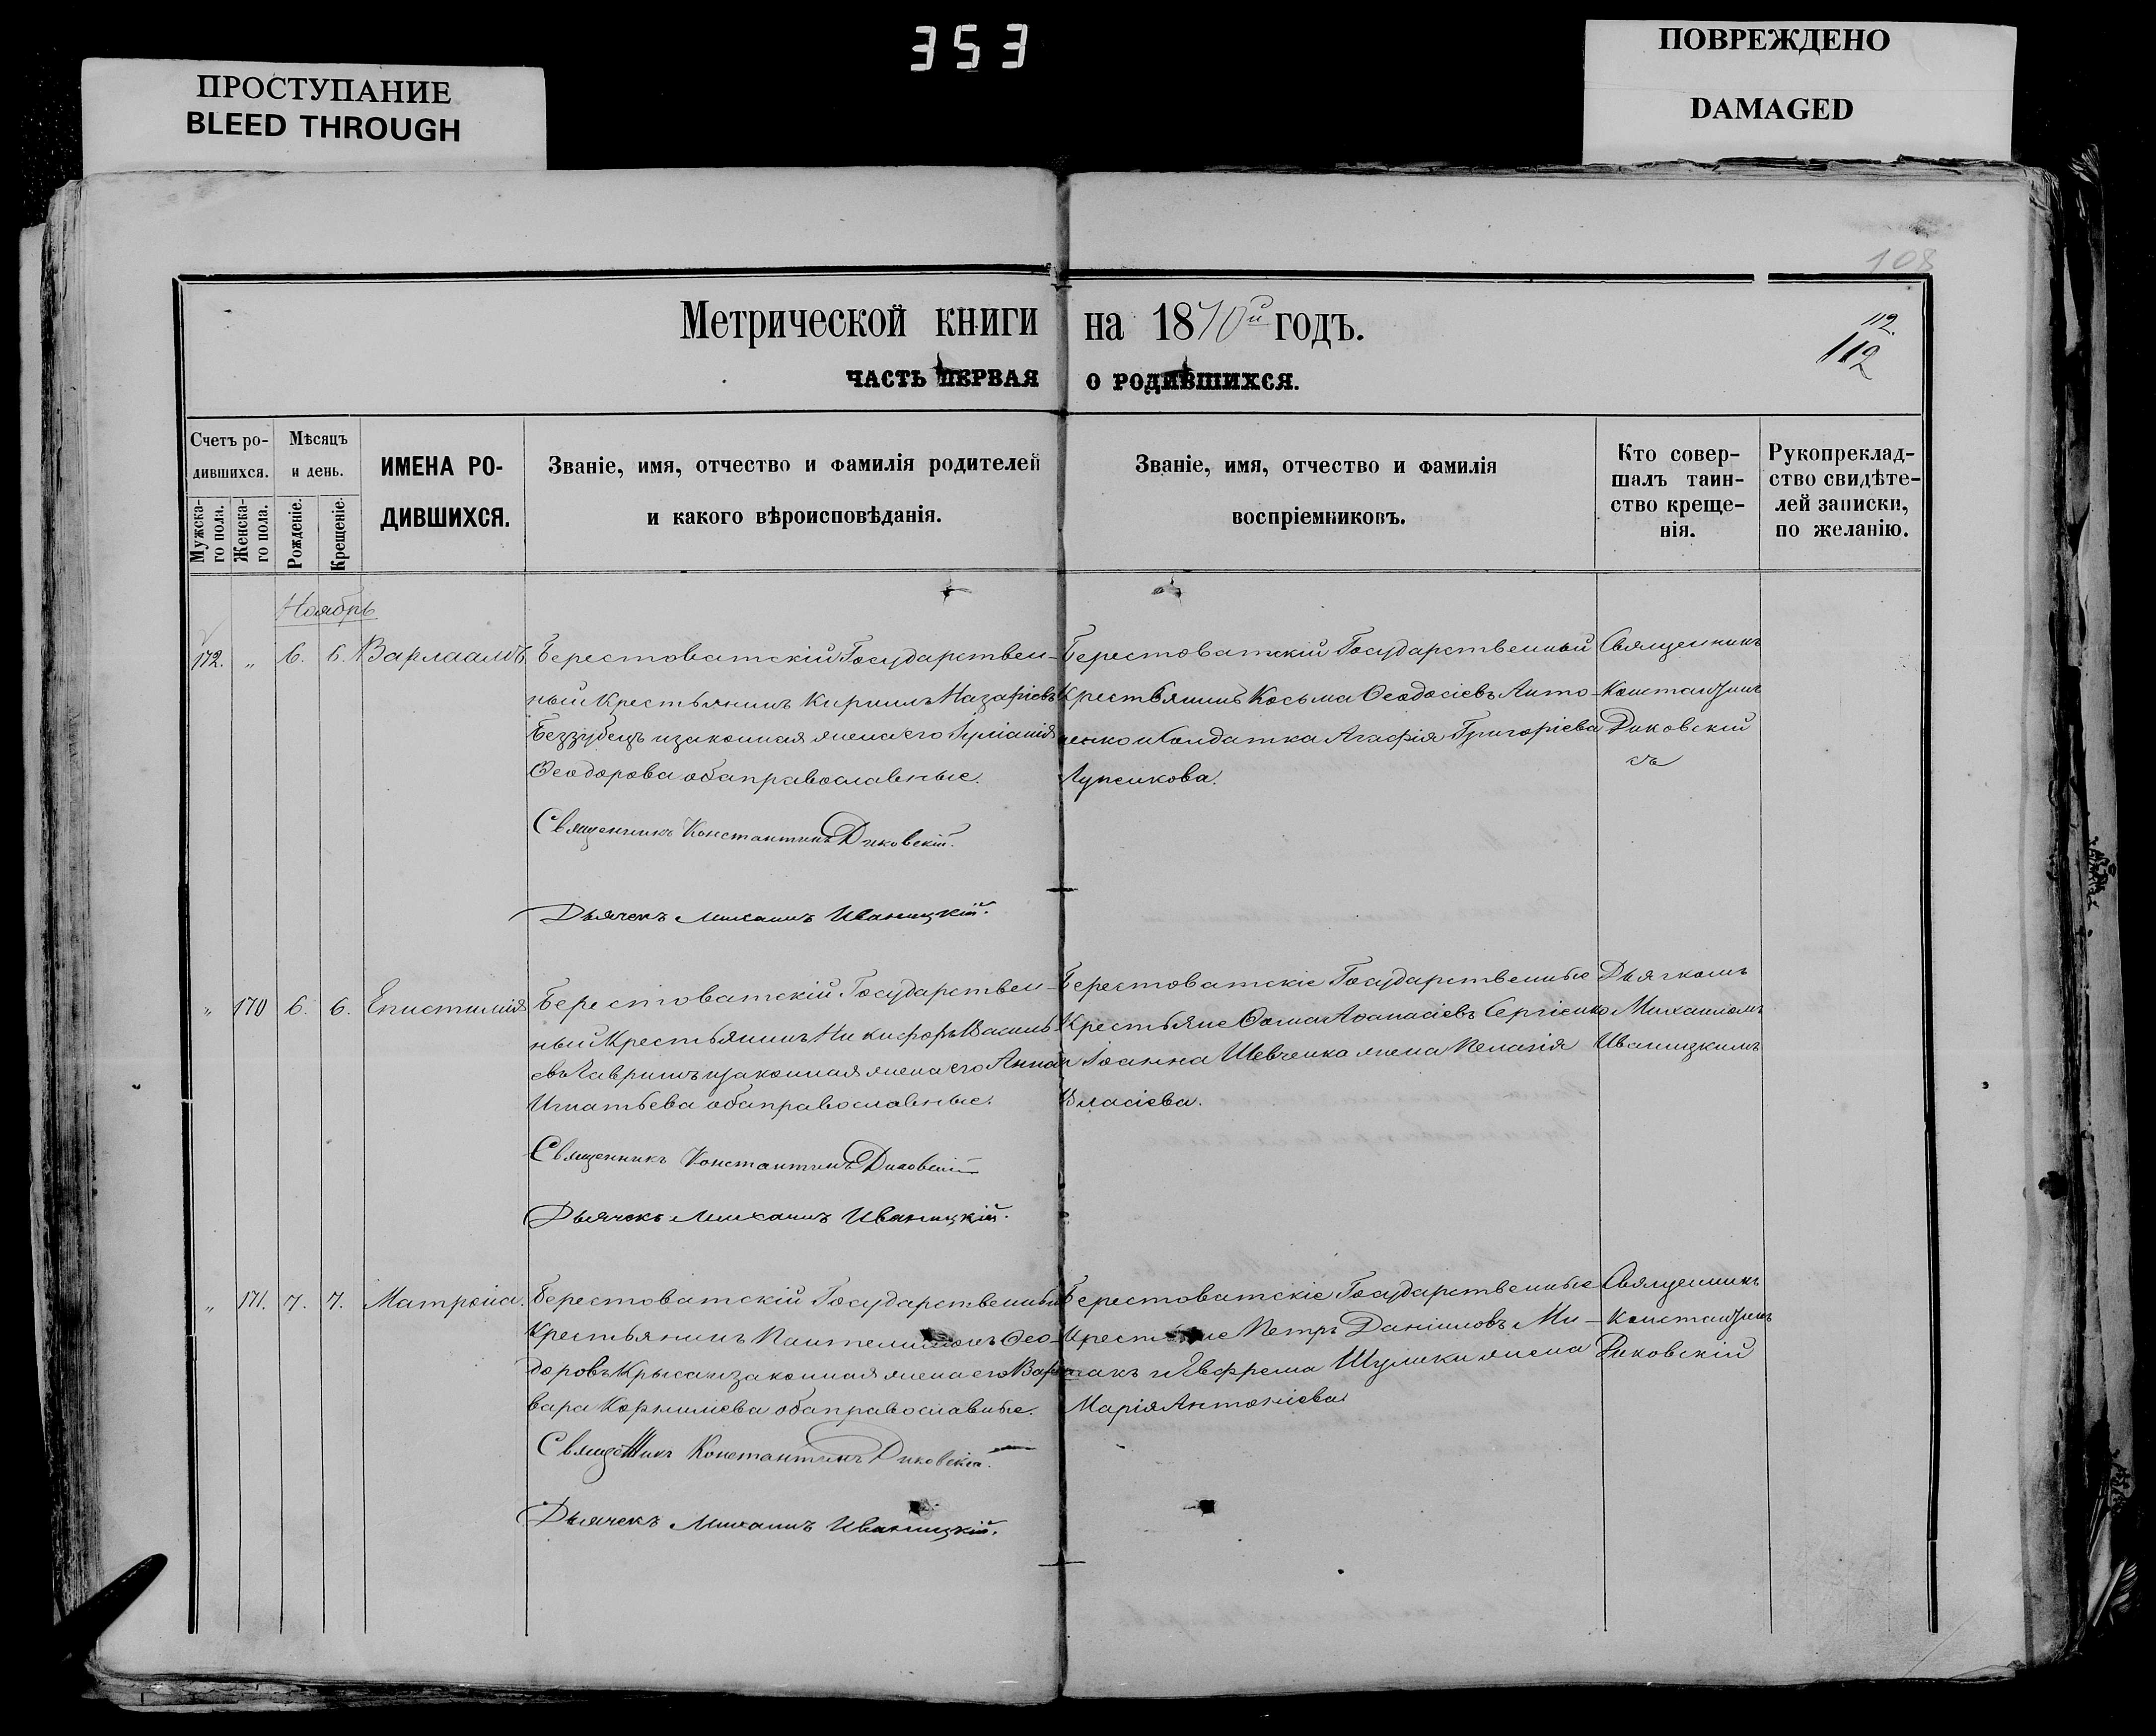 353
ПРОСТУПАНИЕ
BLEED THROUGH
ПОВРЕЖДЕНО
DAMAGED
108
Метрической книги на 1870й годъ.
112.
112
ЧАСТЬ ПЕРВАЯ О РОДИВШИХСЯ.
Счетъ ро-
дившихся.
Мужска-
го пола.
Женска-
го пола.
Мѣсяцъ
и день.
Рожденіе.
Крещеніе.
ИМЕНА РО-
ДИВШИХСЯ.
Званіе, имя, отчество и фамилія родителей
и какого вѣроисповѣданія.
Званіе, имя, отчество и фамилія
воспріемниковъ.
Кто совер-
шалъ таин-
ство креще-
нія.
Рукопреклад-
ство свидѣте-
лей записки,
по желанію.
Ноябрь
172. „ 6. 6. Варлаамъ.
Берестоватскій Государствен-
ный Крестьянинъ Кириллъ Назаріевъ
Беззубецъ и законная жена его Іуліанія
Ѳеодорова оба православные.
Священникъ Константинъ Диковскій.
Дьячекъ Михаилъ Иваницкій.
Берестоватскій Государственный
Крестьянинъ Косьма Ѳеодосіевъ Анто-
ненко и Солдатка Агафія Григоріева
Лупикова.
Священникъ
Константинъ
Диковскій
„ 170 6. 6. Епистимія
Берестоватскій Государствен-
ный Крестьянинъ Никифоръ Василь
евъ Гавришъ и законная жена его Анна
Игнатьева оба православные.
Священникъ Константинъ Диковскій
Дьячекъ Михаилъ Иваницкій.
Берестоватскіе Государственные
Крестьяне Ѳома Аѳанасіевъ Сергіенко
и Іоанна Шевченка жена Пелагія
Власіева.
Дьячкомъ
Михаиломъ
Иваницкимъ
„ 171. 7. 7. Матрона.
Берестоватскій Государственный
Крестьянинъ Пантелеимонъ Ѳео-
доровъ Крыса и законная жена его Вар-
вара Корниліева оба православные.
Священникъ Константинъ Диковскій.
Дьячекъ Михаилъ Иваницкій.
Берестоватскіе Государственные
Крестьяне Петръ Даніиловъ Ми-
накъ и Евфрема Шулики жена
Марія Антоніева
Священникъ
Константинъ
Диковскій